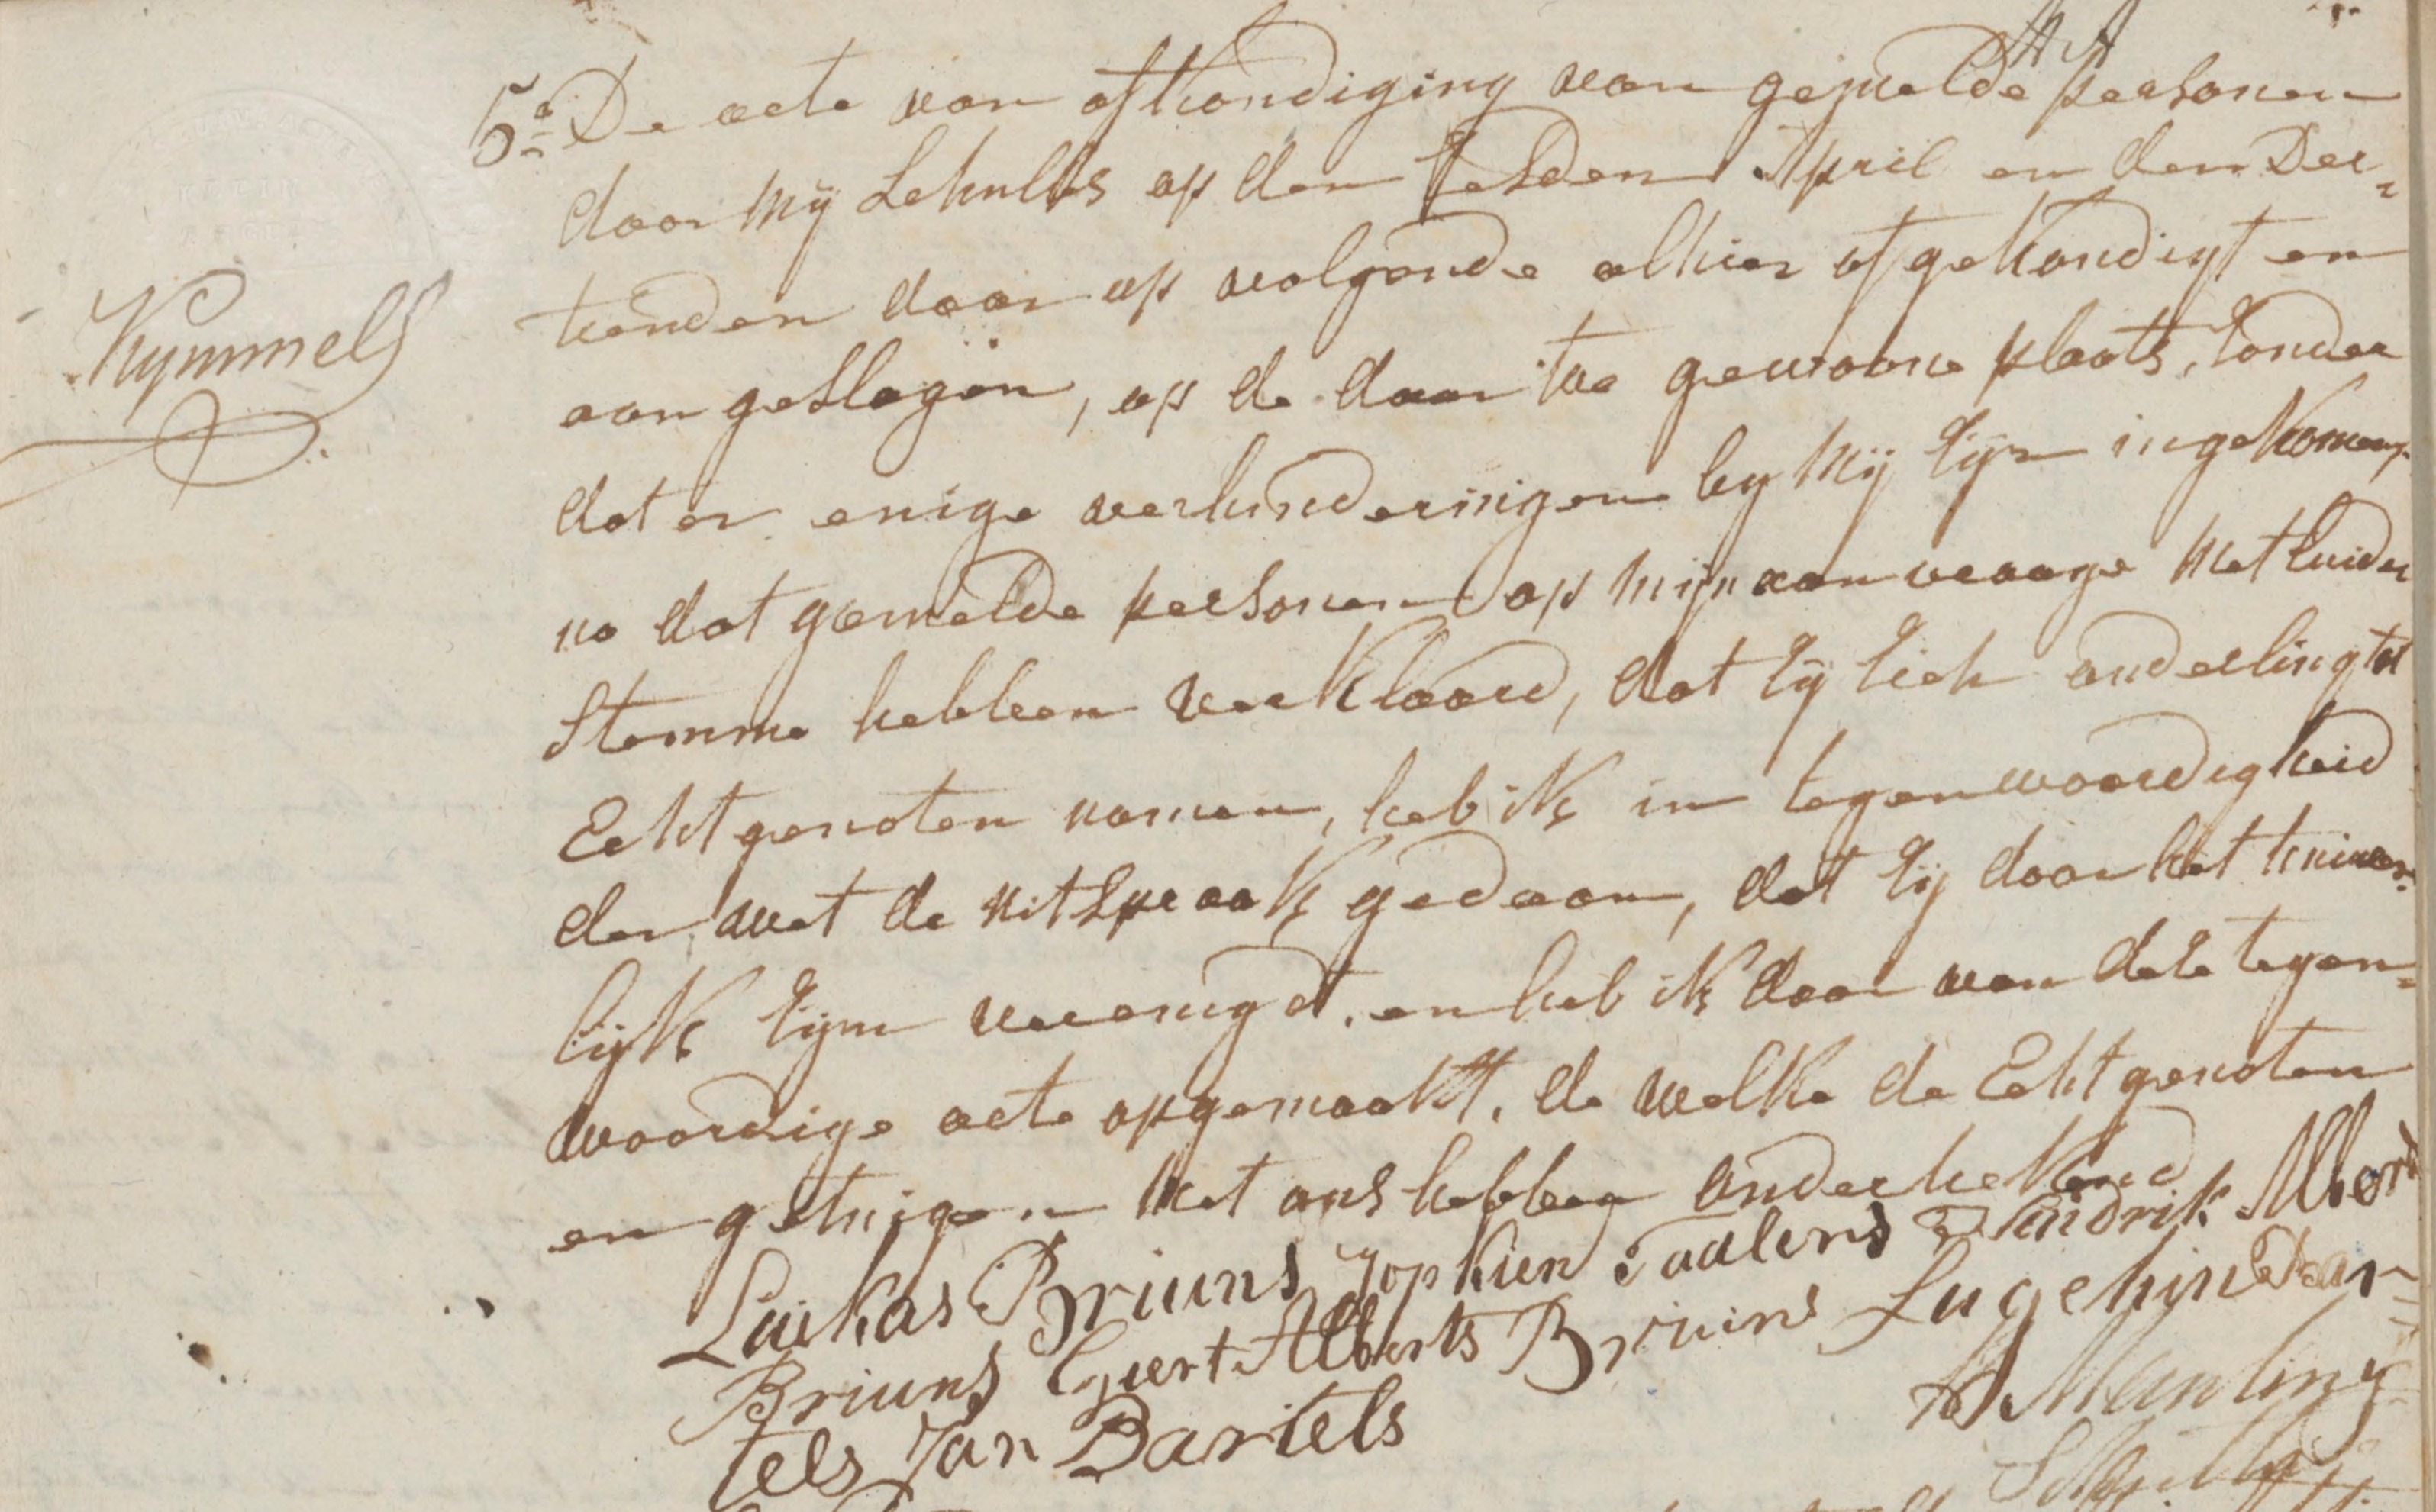 5º De acte van afkondiging van gemelde personen
door mij Schultes op den sesden April en den Der„
tienden daar op volgende alhier afgekondigt en
aangeslagen, op de daar toe gewoone plaats, sonder
dat er enige verhinderingen by mij sijn ingekomen,
na dat gemelde personen op mijn aanvraage met luider
Stemme hebben verklaard, dat sij sich onderling tot
Echtgenoten namen, heb ik in tegenwoordigheid
der wet de uitspraak gedaan, dat sij door het huwe„
lijk sijn vereenigd, en heb ik daar van dese tegen„
woordige acte opgemaakt, de welke de Echtgenoten
en getuigen met ons hebben onderteekend
Kymmell
Luikas Briuns Jopkien Taalens Hindrik Albert
Briuns Geert Alberts Bruins Lugehin Bar=
tels Jan Bartels
Manting
Schultes